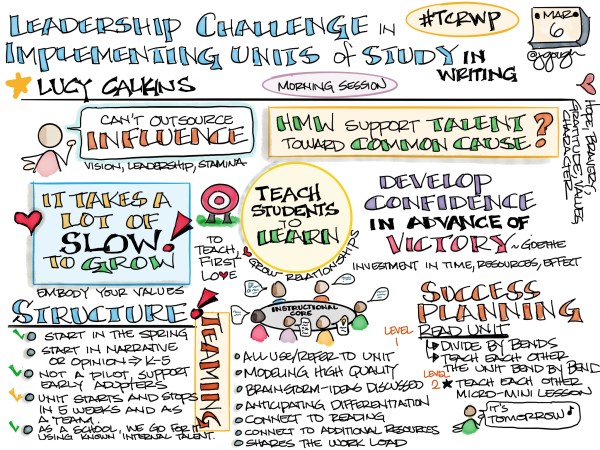 LEADERSHIP CHALLENGE IN
IMPLEMENTING UNITS of STUDY IN
WRITING
#TCRWP
MAR
6
@jgough
LUCY CALKINS
MORNING SESSION
HOPE, BRAVERY,
GRATITUDE, VALUES
CHARACTER
CAN'T OUTSOURCE
INFLUENCE
VISION, LEADERSHIP, STAMINA
HMW SUPPORT TALENT
TOWARD COMMON CAUSE?
IT TAKES A
LOT OF
SLOW!
TO GROW
EMBODY YOUR VALUES
TO TEACH,
FIRST
LOVE
TEACH
STUDENTS
TO
LEARN
GROW RELATIONSHIPS
DEVELOP
CONFIDENCE
IN ADVANCE OF
VICTORY ~ GOETHE
INVESTMENT IN TIME, RESOURCES, EFFECT
STRUCTURE!
START IN THE SPRING
START IN NARRATIVE
OR OPINION → K-5
NOT A PILOT, SUPPORT
EARLY ADOPTERS
UNIT STARTS AND STOPS
IN 5 WEEKS AND AS
A TEAM.
AS A SCHOOL, WE GO FOR IT
USING KNOWN INTERNAL TALENT.
TEAMING
INSTRUCTIONAL
CORE
ALL USE/REFER TO UNIT
MODELING HIGH QUALITY
BRAINSTORM-IDEAS DISCUSSED
ANTICIPATING DIFFERENTIATION
CONNECT TO READING
CONNECT TO ADDITIONAL RESOURCES
SHARES THE WORK LOAD
SUCCESS
PLANNING
LEVEL
1
READ UNIT
DIVIDE BY BENDS
TEACH EACH OTHER
THE UNIT BEND BY BEND
LEVEL
2 ★ TEACH EACH OTHER
MICRO-MINI LESSON
IT'S
TOMORROW♪